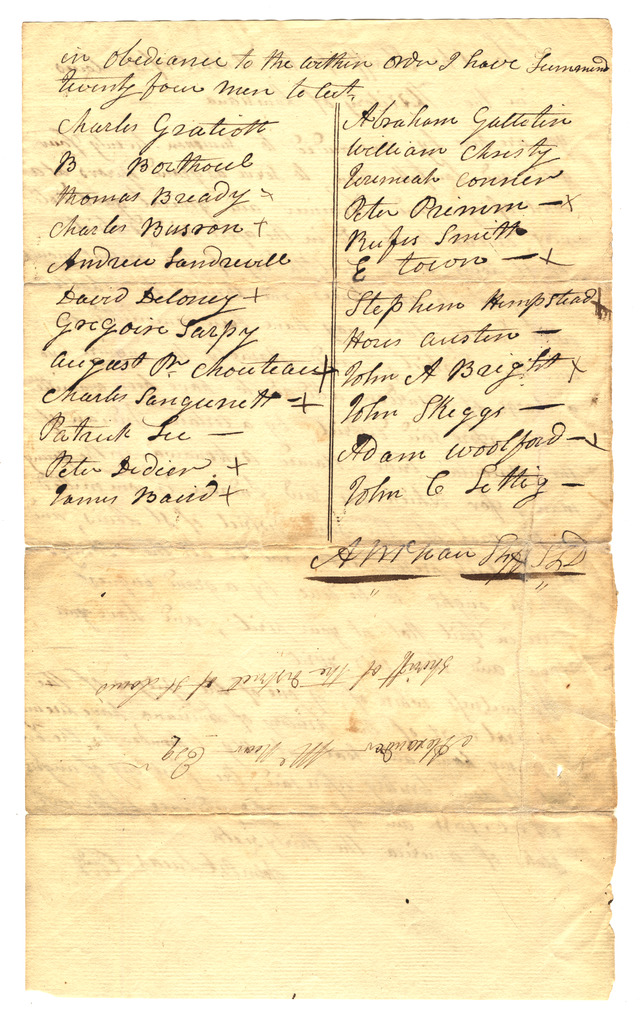 in obediance to the within order I have Summond
twenty four men to wit,
Charles Gratiott
B Borthoul
Thomas Bready x
Charles Busron +
Andrew Landrevill
David Deloney +
Gregoire Sarpy
August Pr Chouteau +
Charles Sangunett - +
Patrick Lee -
Peter Didier +
James Baird +
Abraham Gallatin
William Christy
Jeremiah Conner
Peter Primm - x
Rufus Smith
E Town - +
Stephen Hempstead +
Hores Austin -
John A Bright x
John Skeggs -
Adam Woolford - x
John C Lettig -
A McNair Shff
Sheriff of the District of St Louis
Alexander McNair Esqr